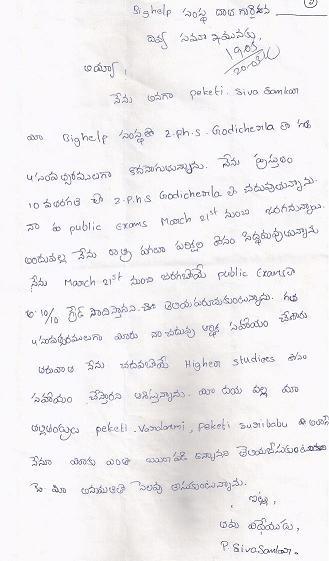 Bighelp సంస్థ దాత గార్లకు
దివ్య సమూఖమునకు,
1903
20.03.16
అయ్యా,
నేను అనగా peketi. Siva Sankar
మా Bighelp సంస్థతో Z.Ph.S. Godicherla లో గత
4 సంవత్సరములుగా చదువుతున్నాను. నేను ప్రస్తుతం
10 వ తరగతి లో Z.P.H.S Godicherla లో చదువుచున్నాను.
నా కు public exams March 21st నుంచి జరగనున్నాయి.
అందువల్ల నేను రాత్రి పగలు పరీక్షల కోసం సిద్ధమవుతున్నాను
నేను March 21st నుంచి జరగబోయే public Exams లో
10/10 గ్రేడ్ సాధిస్తానని తెలియపరుచుకుంటున్నాను. గత
4 సంవత్సరములుగా మీరు నా చదువు ఆర్థిక సహాయం చేశారు
తరువాత నేను చదవబోయే Higher studies కోసం
సహాయం చేస్తారని ఆశిస్తున్నాను. మీ దయ వల్ల మా
తల్లిదండ్రులు peketi. Varalaxmi, Peketi suribabu
నేనూ మీకు ఎంతో ఋణపడి ఉన్నామని తెలియజేసుకుంటున్నాను
మీ అనుమతితో సెలవు తీసుకుంటున్నాను.
ఇట్లు,
తమ విధేయుడు,
P. Siva Sankar.